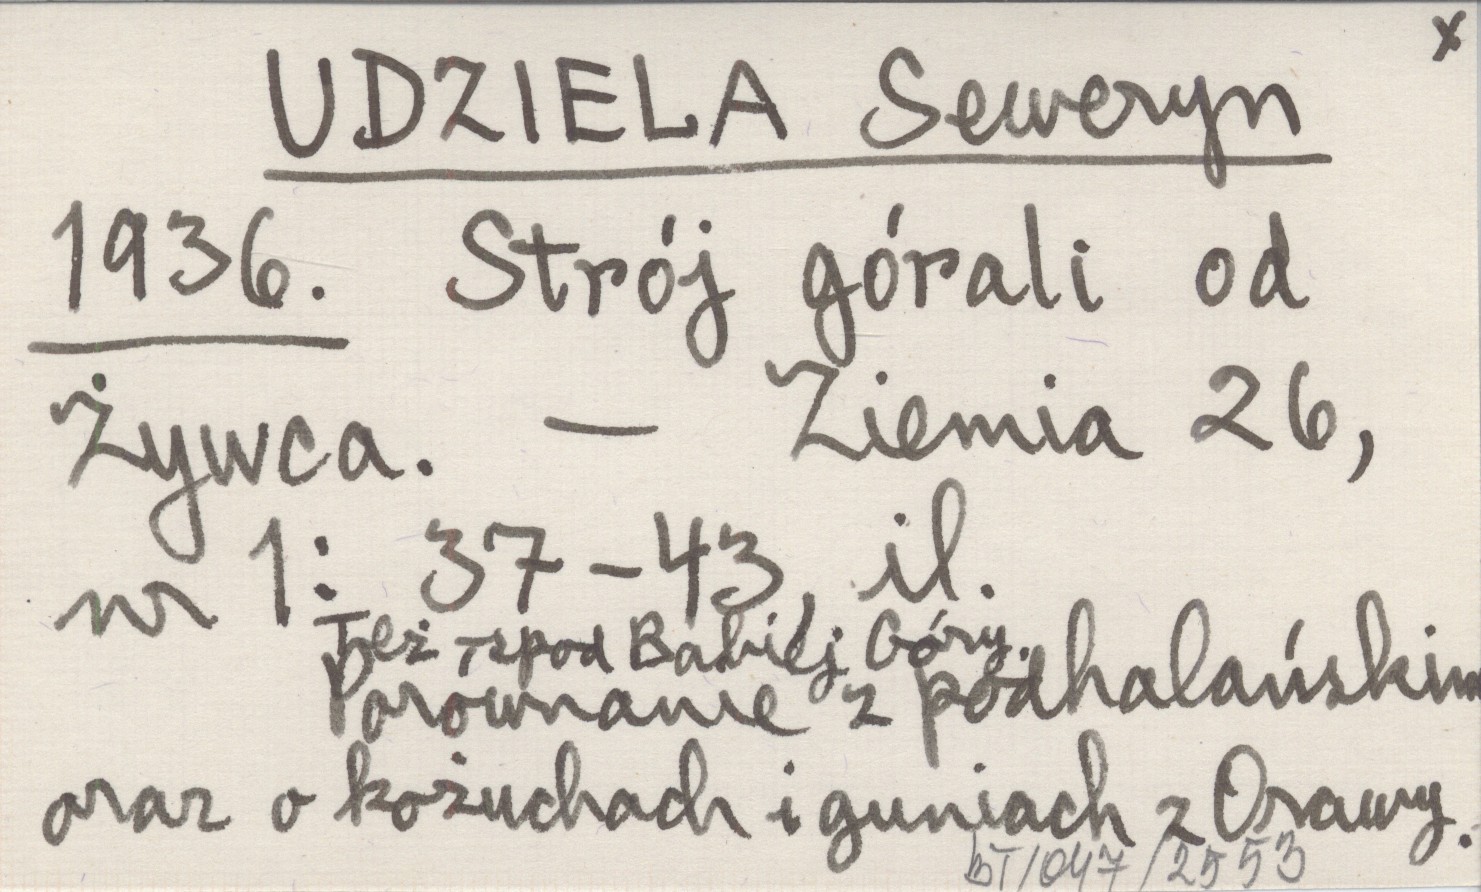 x
UDZIELA Seweryn
1936. Strój górali od
Żywca. — Ziemia 26,
nr 1: 37-43, il.
Też spod Babiej Góry.
Porównanie z podhalańskim
oraz o kożuchach i guniach z Orawy.
BT/047/2553